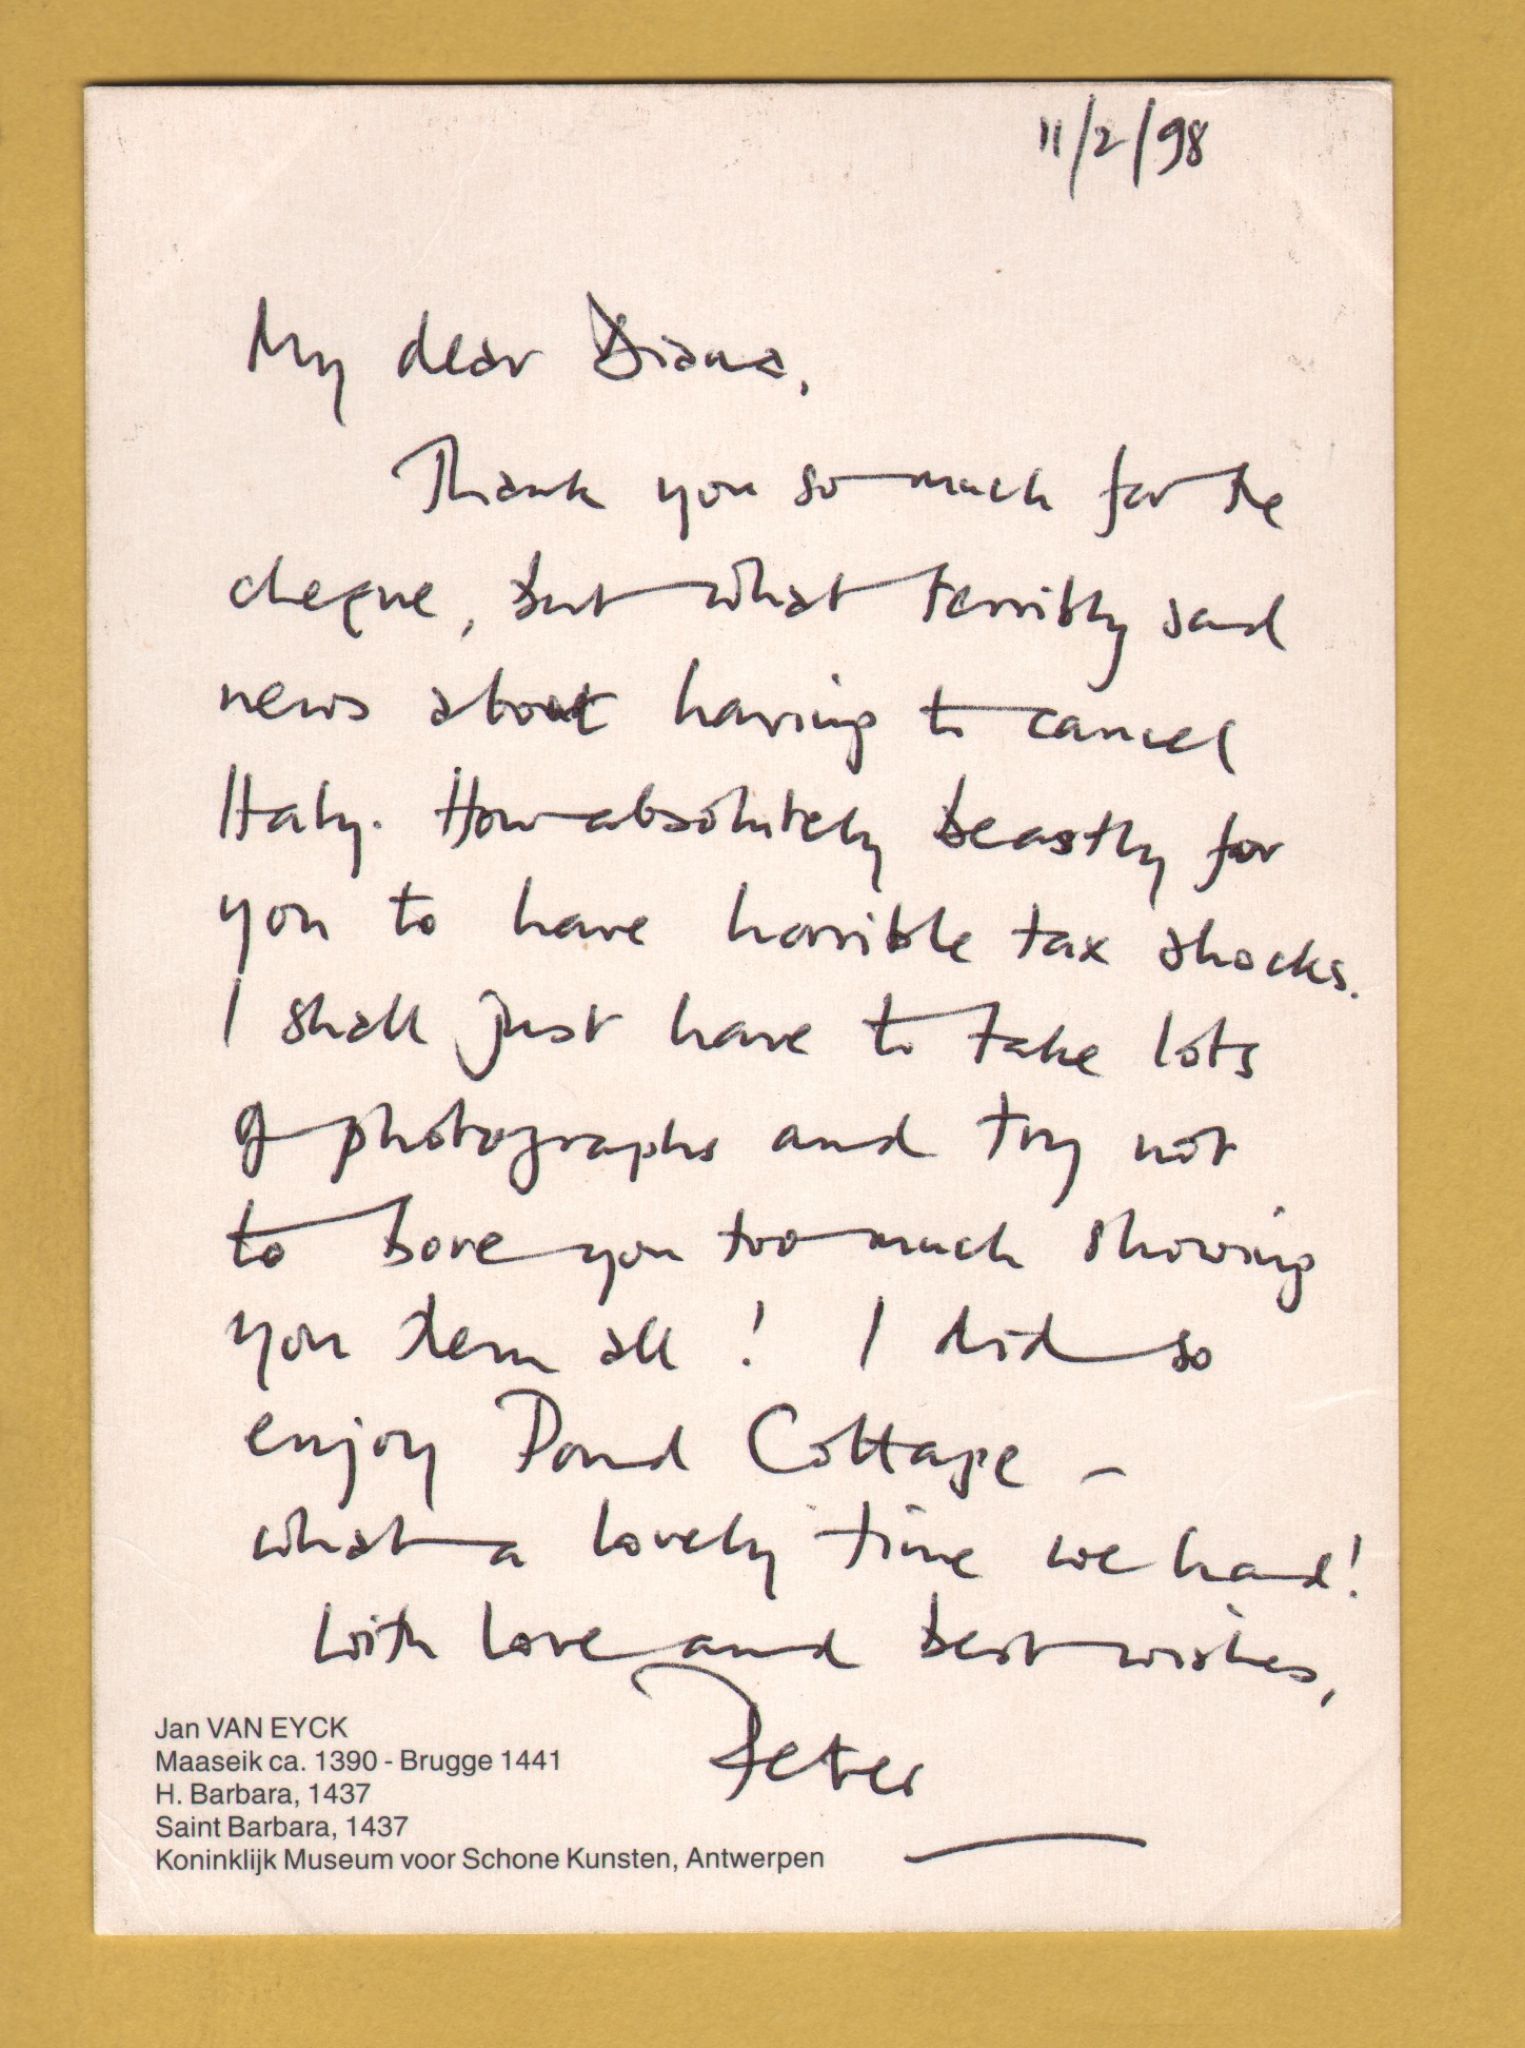 11/2/98
My dear Diana,
Thank you so much for the
cheque, but what terribly sad
news about having to cancel
Italy. How absolutely beastly for
you to have horrible tax shocks.
I shall just have to take lots
of photographs and try not
to bore you too much showing
you them all! I did so
enjoy Pond Cottage –
what a lovely time we had!
With love and best wishes,
Peter
Jan VAN EYCK
Maaseik ca. 1390 - Brugge 1441
H. Barbara, 1437
Saint Barbara, 1437
Koninklijk Museum voor Schone Kunsten, Antwerpen